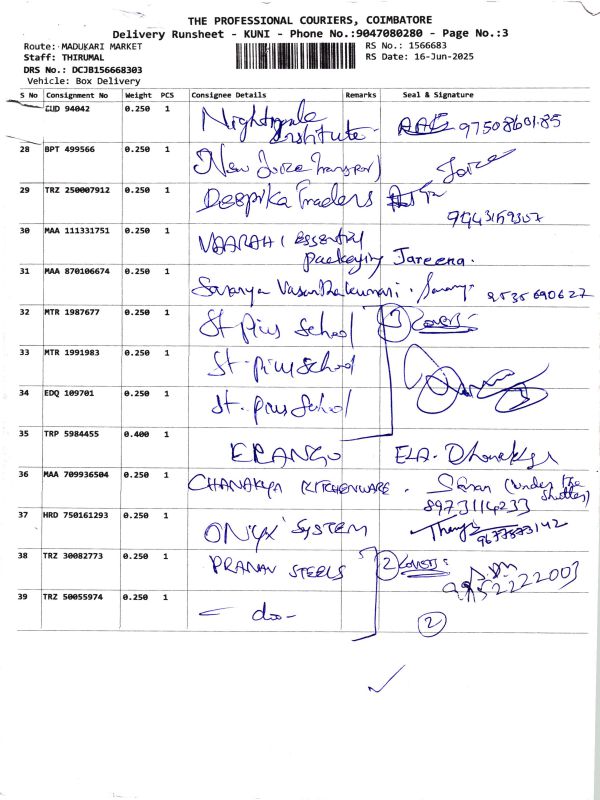 THE PROFESSIONAL COURIERS, COIMBATORE
Delivery Runsheet - KUNI - Phone No.:9047080280 - Page No.:3
Route: MADUKARI MARKET RS No.: 1566683
Staff: THIRUMAL RS Date: 16-Jun-2025
DRS No.: DCJB156668303
Vehicle: Box Delivery
S No Consignment No Weight PCS Consignee Details Remarks Seal & Signature
94042 0.250 1 Nightingale Institute 9750860185
28 BPT 499566 0.250 1 New Joize Transport Joize
29 TRZ 250007912 0.250 1 Deepika Traders 9443159307
30 MAA 111331751 0.250 1 VAARAHI ESSENTIAL Packeying Jareena.
31 MAA 870106674 0.250 1 Saranya Vasanthakumari. 9535690627
32 MTR 1987677 0.250 1 St pius School 3 covers
33 MTR 1991983 0.250 1 St. pius School
34 EDQ 109701 0.250 1 St. pius School
35 TRP 5984455 0.400 1 ELA.
36 MAA 709936504 0.250 1 CHANAKYA KITCHENWARE. (Under the Shutter)
8973114233
37 HRD 750161293 0.250 1 ONYX SYSTEM 9677873142
38 TRZ 30082773 0.250 1 PRANAV STEELS 2 covers:
39 TRZ 50055974 0.250 1 - do -
2